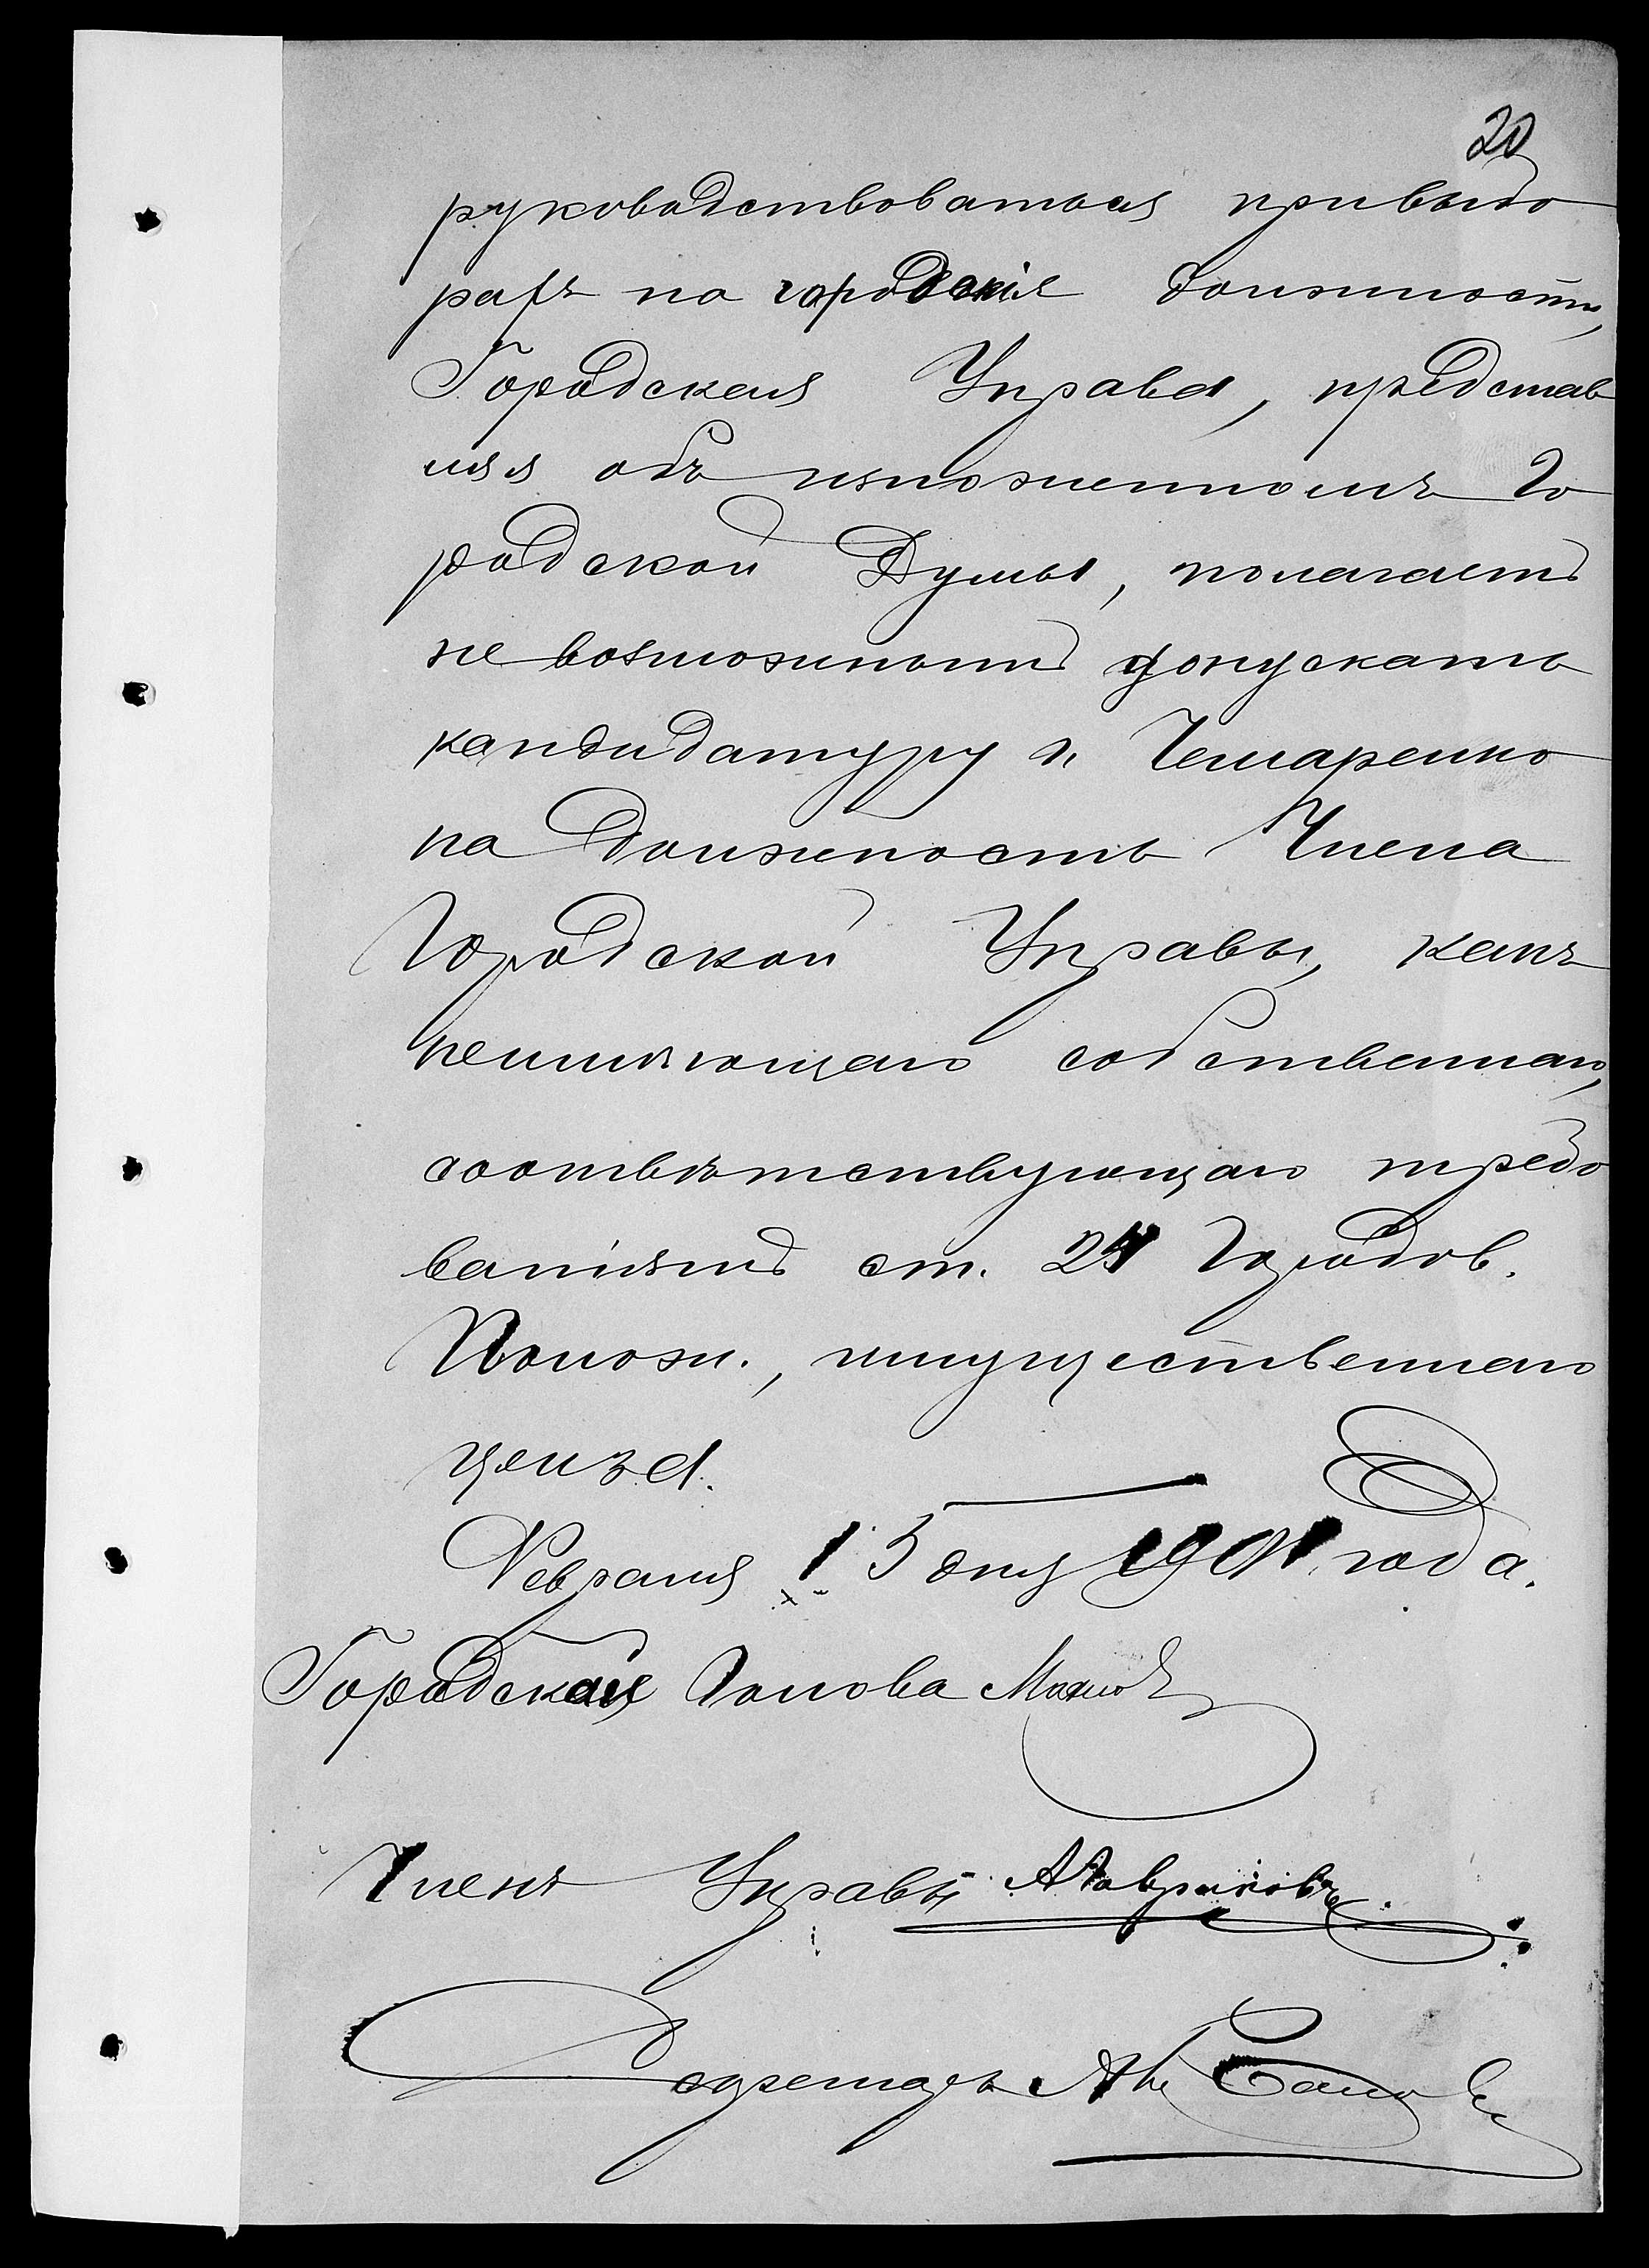 20
руководствоваться при выбо
рахъ на городскія должности,
Городская Управа, представ
ляя объ изложенномъ Го
родской Думы, полагаетъ
не возможнымъ допускать
кандидатуру г. Чемаренко
на должность Члена
Городской Управы, какъ
неимѣющаго собственнаго,
соотвѣтствующаго требо
ваніямъ ст. 24 Городов.
Полож., имущественнаго
ценза.
Февраля 15 дня 1901 года.
Городская Голова
Членъ Управы А Гавриловъ
Секретарь